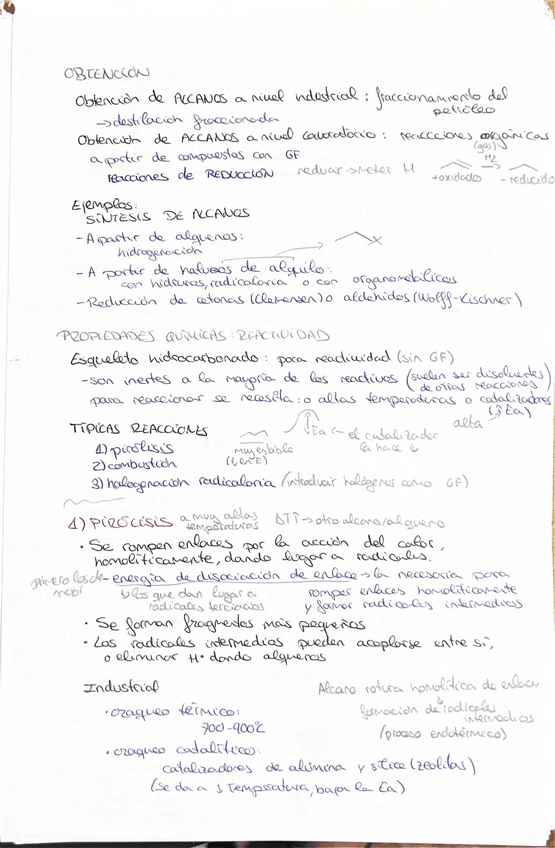 OBTENCIÓN
Obtención de ALCANOS a nivel industrial : fraccionamiento del
petróleo
→ destilación fraccionada
Obtención de ALCANOS a nivel laboratorio : reaccciones orgánicas
a partir de compuestos con GF
REACCIONES DE REDUCCIÓN reducir → meter H
(gas)
H2
+oxidado - reducido
Ejemplos:
SÍNTESIS DE ALCANOS
- A partir de alquenos:
hidrogenación
X
- A partir de haluros de alquilo:
con hidruros, radicalaria o con organometálicos
- Reducción de cetonas (Clemensen) o aldehidos (Wolff-Kischner)
PROPIEDADES QUÍMICAS : REACTIVIDAD
Esqueleto hidrocarbonado : poca reactividad (sin GF)
- son inertes a la mayoría de los reactivos (suelen ser disolventes)
de otras reacciones
para reaccionar se necesita : o altas temperaturas o catalizadores
alta (↑Ea)
TÍPICAS REACCIONES
Ea ← el catalizador
la hace ↓
muy estable
1) pirólisis
2) combustión
3) halogenación radicalaria (introducir halógenos como GF)
1) PIRÓLISIS a muy altas
temperaturas
ΔTT → otro alcano/alqueno
• Se rompen enlaces por la acción del calor,
homolíticamente, dando lugar a radicales.
primero los de
- energía de disociación de enlace → la necesaria para
romper enlaces homolíticamente
y formar radicales intermedios
los que dan lugar a
radicales terciarios
• Se forman fragmentos más pequeños
• Los radicales intermedios pueden acoplarse entre sí,
o eliminar H• dando alquenos
Industrial
Alcano: rotura homolítica de enlaces
↓
formación de radicales
intermedios
(proceso endotérmico)
• craqueo térmico:
700-900ºC
• craqueo catalítico:
catalizadores de alúmina y sílice (zeolitas)
(se da a ↓ Temperatura, baja la Ea)